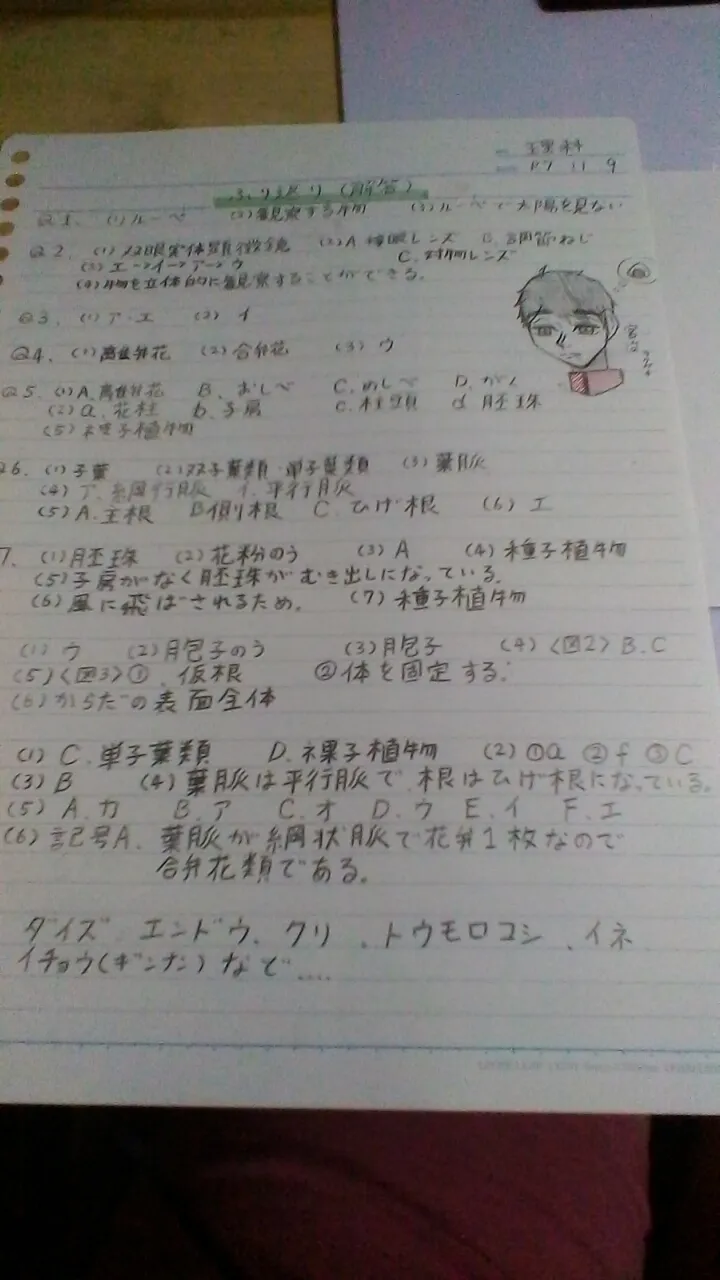 理科
R7 11 9
ふり返り(解答)
Q1. (1)ルーペ (2)観察する物 (3)ルーペで太陽を見ない
Q2. (1)双眼実体顕微鏡 (2)A 接眼レンズ B.調節ねじ
C.対物レンズ
(3)エ→イ→ア→ウ
(4)物を立体的に観察することができる。
Q3. (1)ア・エ (2)イ
Q4. (1)離弁花 (2)合弁花 (3)ウ
Q5. (1)A.離弁花 B.おしべ C.めしべ D.がく
(2)a.花柱 b.子房 c.柱頭 d 胚珠
(5)種子植物
Q6. (1)子葉 (2)双子葉類・単子葉類 (3)葉脈
(4)ア.網行脈 イ.平行脈
(5)A.主根 B側根 C.ひげ根 (6)エ
7. (1)胚珠 (2)花粉のう (3)A (4)種子植物
(5)子房がなく胚珠がむき出しになっている。
(6)風に飛ばされるため。 (7)種子植物
(1)ウ (2)胞子のう (3)胞子 (4)〈図2〉B.C
(5)〈図3〉①.仮根 ②体を固定する.
(6)からだの表面全体
(1)C.単子葉類 D.裸子植物 (2)①a ②f ③C
(3)B (4)葉脈は平行脈で、根はひげ根になっている。
(5)A.カ B.ア C.オ D.ウ E.イ F.エ
(6)記号A、葉脈が網状脈で花弁1枚なので
合弁花類である。
ダイズ、エンドウ、クリ、トウモロコシ、イネ
イチョウ(ギンナン)など....